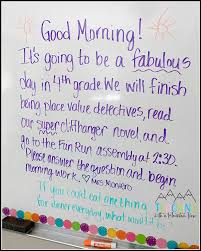 Good Morning!
It's going to be a fabulous
day in 4th grade. We will finish
being place value detectives, read
our super cliffhanger novel, and
go to the Fun Run assembly at 2:30.
Please answer the question and begin
morning work. ♡ Mrs
If you could eat one thing
for dinner everyday, what would it
be?